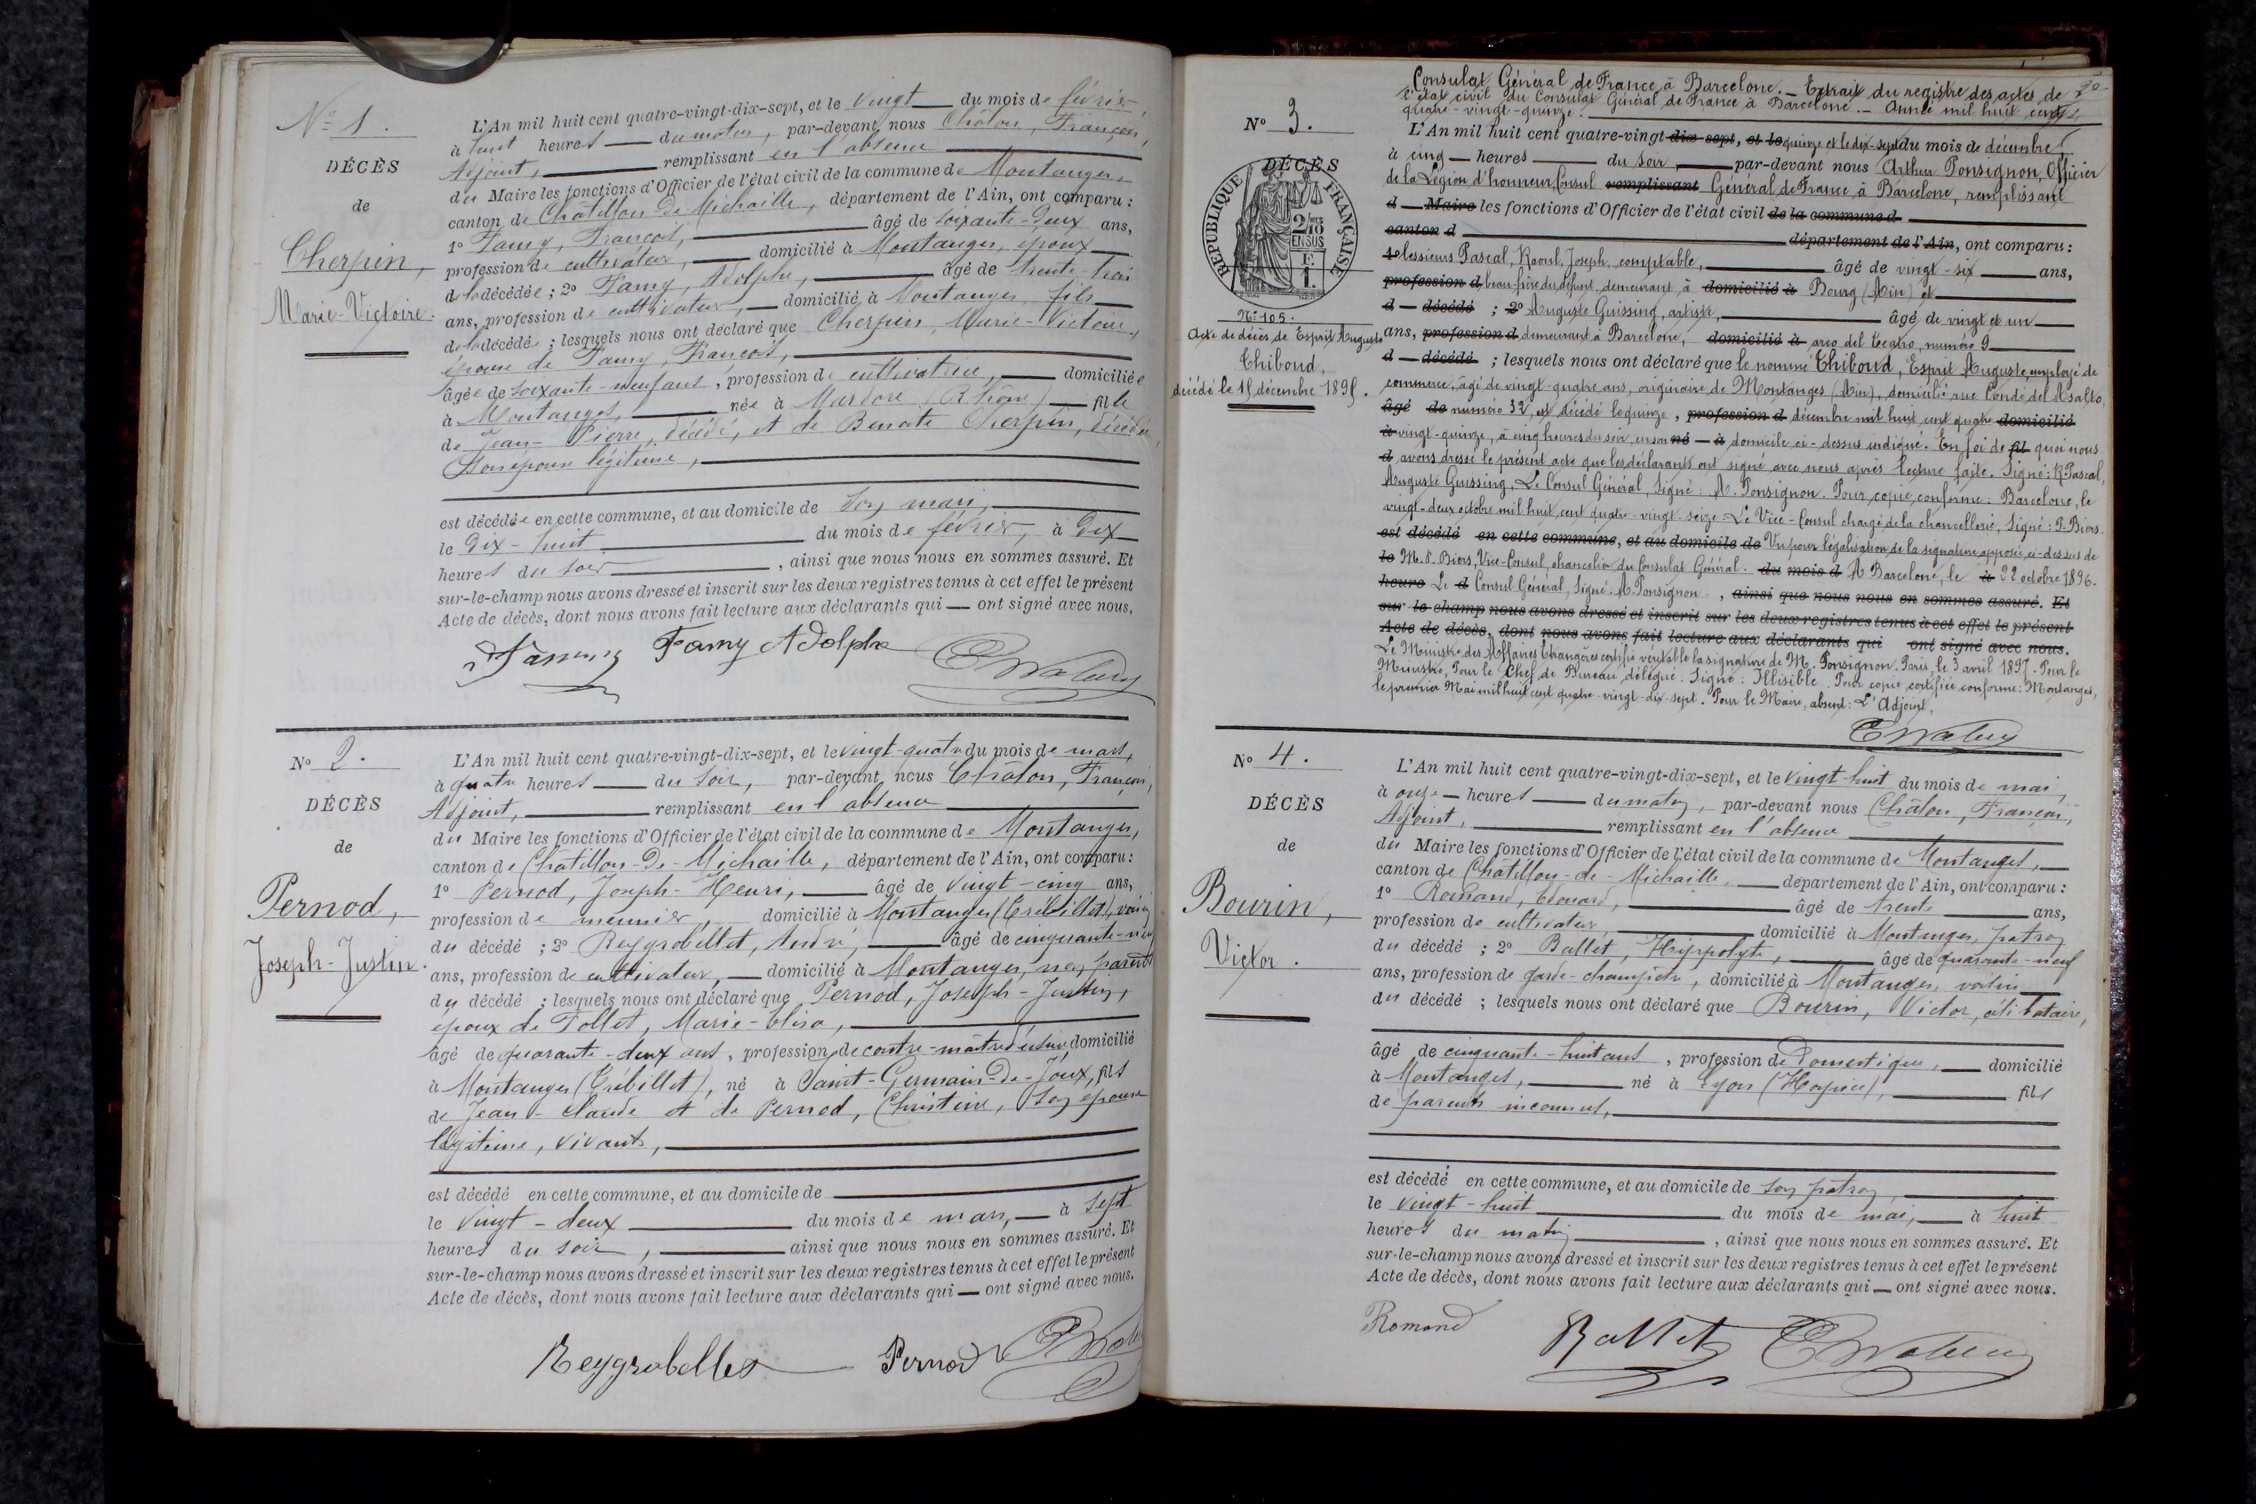 N° 1.
DÉCÈS
de
Cherpin,
Marie-Victoire.
L'An mil huit cent quatre-vingt-dix-sept, et le vingt du mois de février,
à huit heures du matin, par-devant nous Châlon, François,
Adjoint, remplissant en l'absence
du Maire les fonctions d'Officier de l'état civil de la commune de Montanges,
canton de Châtillon-de-Michaille, département de l'Ain, ont comparu :
1° Famy, François, âgé de soixante-deux ans,
profession de cultivateur, domicilié à Montanges, époux
de la décédée ; 2° Famy, Adolphe, âgé de trente-trois
ans, profession de cultivateur, domicilié à Montanges, fils
de la décédée ; lesquels nous ont déclaré que Cherpin, Marie-Victoire,
épouse de Famy, François,
âgée de soixante-neuf ans, profession de cultivatrice, domiciliée
à Montanges, née à Mardore (Rhône) fille
de Jean-Pierre, décédé, et de Benoite Cherpin, décédée,
son épouse légitime,
est décédée en cette commune, et au domicile de son mari,
le dix-huit du mois de février, à dix
heures du soir, ainsi que nous nous en sommes assuré. Et
sur-le-champ nous avons dressé et inscrit sur les deux registres tenus à cet effet le présent
Acte de décès, dont nous avons fait lecture aux déclarants qui ont signé avec nous.
Famy Adolphe
N° 2.
DÉCÈS
de
Pernod,
Joseph-Justin.
L'An mil huit cent quatre-vingt-dix-sept, et le vingt-quatre du mois de mars,
à quatre heures du soir, par-devant nous Châlon, François,
Adjoint, remplissant en l'absence
du Maire les fonctions d'Officier de l'état civil de la commune de Montanges,
canton de Châtillon-de-Michaille, département de l'Ain, ont comparu :
1° Pernod, Joseph-Henri, âgé de vingt-cinq ans,
profession de meunier, domicilié à Montanges (Trébillet), voisin
du décédé ; 2° Reygrobellet, André, âgé de cinquante-neuf
ans, profession de cultivateur, domicilié à Montanges, non parent
du décédé ; lesquels nous ont déclaré que Pernod, Joseph-Justin,
époux de Tollet, Marie-Elisa,
âgé de quarante-deux ans, profession de contre-maître d'usine domicilié
à Montanges (Trébillet), né à Saint-Germain-de-Joux, fils
de Jean-Claude et de Pernod, Christine, son épouse
légitime, vivants,
est décédé en cette commune, et au domicile de
le vingt-deux du mois de mars, à sept
heures du soir, ainsi que nous nous en sommes assuré. Et
sur-le-champ nous avons dressé et inscrit sur les deux registres tenus à cet effet le présent
Acte de décès, dont nous avons fait lecture aux déclarants qui ont signé avec nous.
Reygrobellet Pernod
Consulat Général de France à Barcelone. - Extrait du registre des actes de
l'état civil du Consulat Général de France à Barcelone. - Année mil huit cent
quatre-vingt-quinze.
N° 3.
DÉCÈS
RÉPUBLIQUE FRANÇAISE
2/10
EN SUS
N° 105.
Acte de décès de Esprit Auguste
Thiboud,
décédé le 15 décembre 1895.
L'An mil huit cent quatre-vingt dix-sept, et le quinze et le dix-sept du mois de décembre,
à cinq heures du soir, par-devant nous Arthur Ponsignon, Officier
de la Légion d'honneur, Consul remplissant Général de France à Barcelone, remplissant
d Maire les fonctions d'Officier de l'état civil de la commune d
canton d département de l'Ain, ont comparu :
1° les sieurs Pascal, Raoul, Joseph, comptable, âgé de vingt-six ans,
profession d beau-frère du défunt, demeurant à domicilié à Bourg (Ain) et
d décédé ; 2° Auguste Guissing, artiste, âgé de vingt et un
ans, profession d demeurant à Barcelone, domicilié à arco del teatro, numéro 9
d décédé ; lesquels nous ont déclaré que le nommé Thiboud, Esprit Auguste, employé de
commerce, âgé de vingt-quatre ans, originaire de Montanges (Ain), domicilié rue Conde del Asalto,
âgé de numéro 32, est décédé le quinze, profession d décembre mil huit cent quatre domicilié
à vingt-quinze, à cinq heures du soir, en son né à domicile ci-dessus indiqué. En foi de fil quoi nous
d avons dressé le présent acte que les déclarants ont signé avec nous après lecture faite. Signé : R. Pascal,
Auguste Guissing, Le Consul Général, Signé : A. Ponsignon. Pour copie conforme : Barcelone, le
vingt-deux octobre mil huit cent quatre-vingt-seize. Le Vice-Consul chargé de la chancellerie, Signé : P. Biors.
est décédé en cette commune, et au domicile de Vu pour légalisation de la signature apposée ci-dessus de
le M. P. Biors, Vice-Consul, chancelier du Consulat Général. du mois d A Barcelone, le à 22 octobre 1896.
heure Le d Consul Général, Signé : A. Ponsignon, ainsi que nous nous en sommes assuré. Et
sur le champ nous avons dressé et inscrit sur les deux registres tenus à cet effet le présent
Acte de décès, dont nous avons fait lecture aux déclarants qui ont signé avec nous.
Le Ministre des Affaires Etrangères certifie véritable la signature de M. Ponsignon. Paris, le 3 avril 1897. Pour le
Ministre, Pour le Chef de Bureau délégué. Signé : Illisible. Pour copie certifiée conforme : Montanges,
le premier Mai mil huit cent quatre-vingt-dix-sept. Pour le Maire, absent : L'Adjoint,
N° 4.
DÉCÈS
de
Bourin,
Victor.
L'An mil huit cent quatre-vingt-dix-sept, et le vingt-huit du mois de mai,
à onze heures du matin, par-devant nous Châlon, François,
Adjoint, remplissant en l'absence
du Maire les fonctions d'Officier de l'état civil de la commune de Montanges,
canton de Châtillon-de-Michaille, département de l'Ain, ont comparu :
1° Romand, Edouard, âgé de trente ans,
profession de cultivateur, domicilié à Montanges, patron
du décédé ; 2° Ballet, Hippolyte, âgé de quarante-neuf
ans, profession de garde-champêtre, domicilié à Montanges, voisin
du décédé ; lesquels nous ont déclaré que Bourin, Victor, célibataire,
âgé de cinquante-huit ans, profession de domestique, domicilié
à Montanges, né à Lyon (Hospice), fils
de parents inconnus,
est décédé en cette commune, et au domicile de son patron,
le vingt-huit du mois de mai, à huit
heures du matin, ainsi que nous nous en sommes assuré. Et
sur-le-champ nous avons dressé et inscrit sur les deux registres tenus à cet effet le présent
Acte de décès, dont nous avons fait lecture aux déclarants qui ont signé avec nous.
Romand Ballet